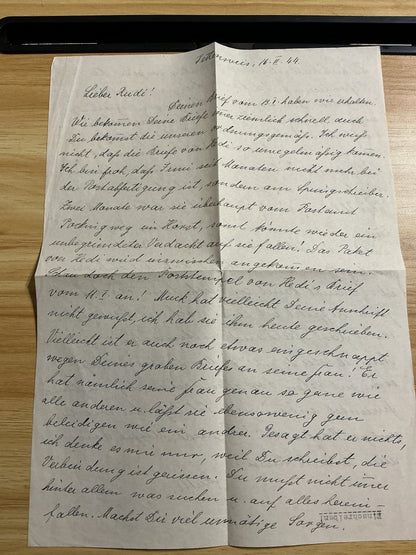 16. II. 44.
Lieber Rudi!
Deinen Brief vom 13. I. haben wir erhalten.
Wir bekommen Deine Briefe immer ziemlich schnell auch
Du bekommst die unseren ordnungsgemäss. Ich weiß
nicht, daß die Briefe von Hedi so unregelmäßig kamen.
Ich bin froh, daß Immi seit Monaten nicht mehr bei
der Postabfertigung ist, sondern am Springschreiber.
Zwei Monate war sie überhaupt vom Postamt
weg im Konst, sonst könnte wieder ein
unbegründeter Verdacht auf sie fallen! Das Paket
von Hedi wird inzwischen angekommen sein.
Schau doch den Poststempel von Hedi's Brief
vom 11. I an! Muck hat vielleicht Deine Anschrift
nicht gewußt, ich hab sie ihm heute geschrieben.
Vielleicht ist er auch noch etwas eingeschnappt
wegen Deines groben Briefes an seine Frau! Er
hat nämlich seine Frau genau so gerne wie
alle anderen u. läßt sie ebensowenig gern
beleidigen wie ein andrer. Gesagt hat er nichts,
ich denke es mir nur, weil Du schreibst, die
Verbindung ist gerissen. Du mußt nicht immer
hinter allem was suchen u. auf alles herein-
fallen. Machst Dir viel unnötige Sorgen.